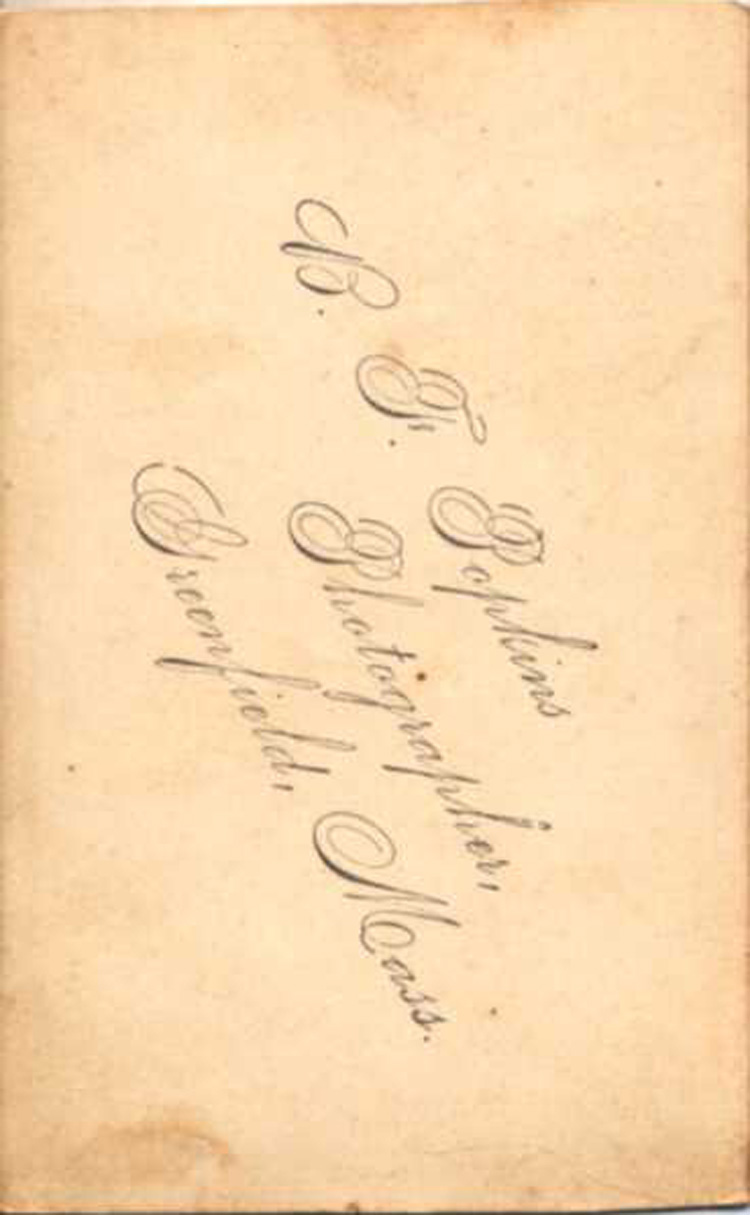 B. F. Popkins
Photographer,
Greenfield, Mass.